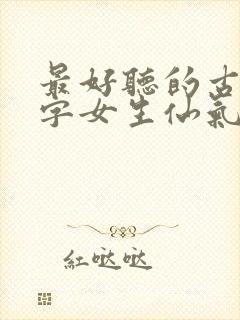 最好聽的古
字女生仙氣
紅哒哒